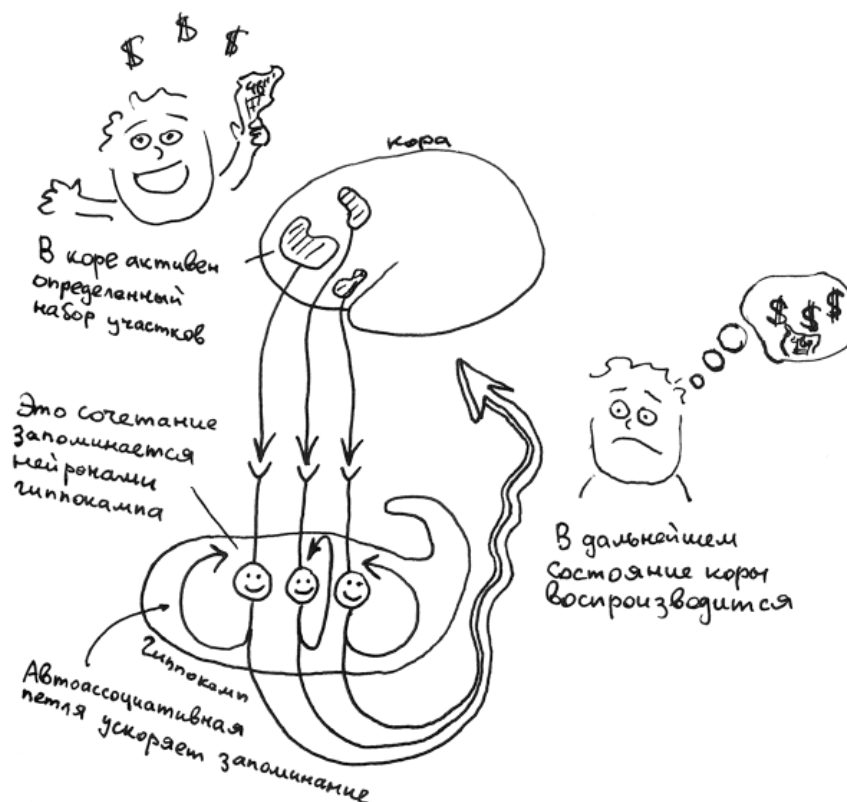 $ $ $
кора
В коре активен
определенный
набор участков
$ $ $
Это сочетание
запоминается
нейронами
гиппокампа
В дальнейшем
состояние коры
воспроизводится
Гиппокамп
Автоассоциативная
петля ускоряет запоминание